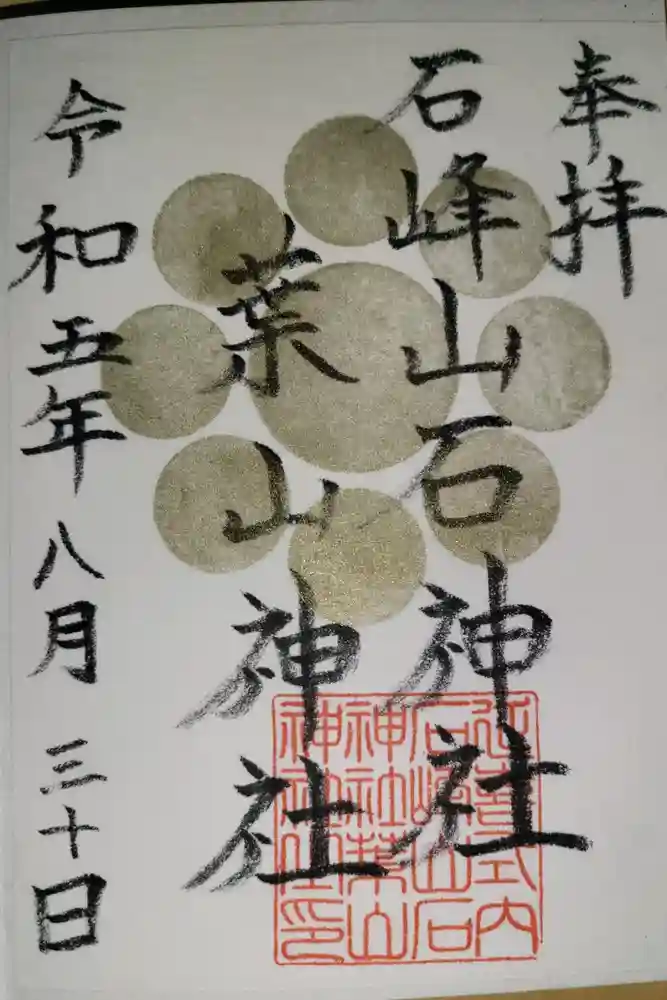 奉拝
石峰山石神社
葉山神社
令和五年八月三十日
延喜式内
石峰山石
神社葉山
神社印